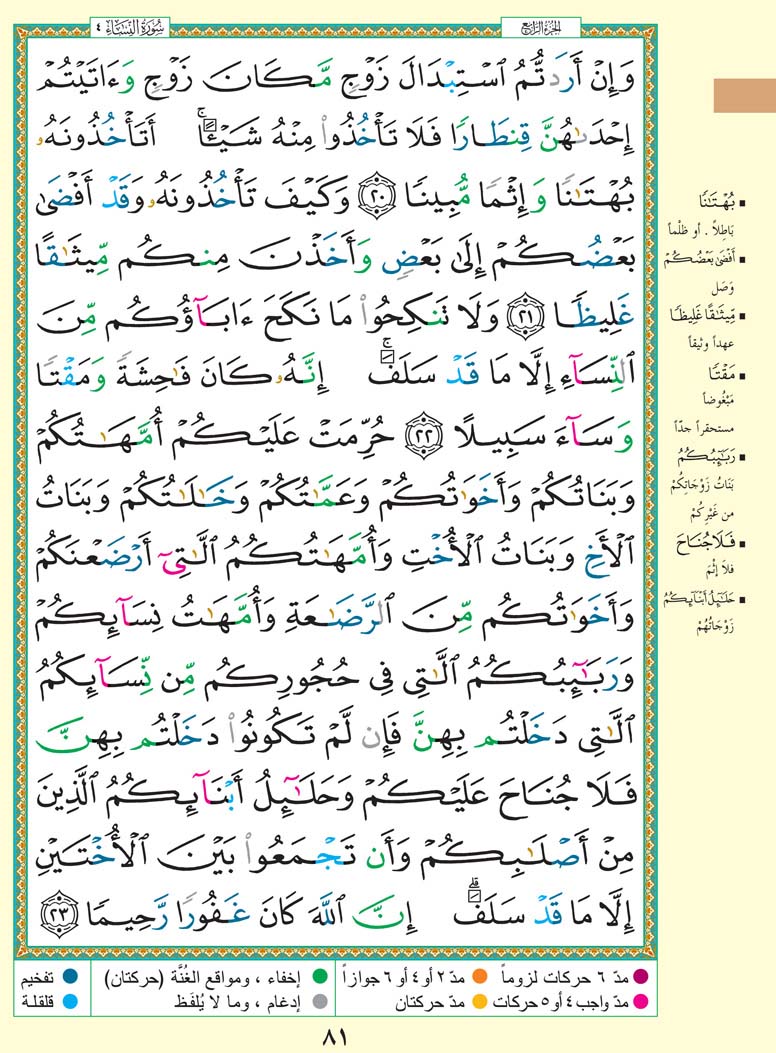 الجزء الرابع
سورة النساء ٤
وَإِنْ أَرَدتُّمُ ٱسْتِبْدَالَ زَوْجٍ مَّكَانَ زَوْجٍ وَءَاتَيْتُمْ
إِحْدَىٰهُنَّ قِنطَارًا فَلَا تَأْخُذُوا۟ مِنْهُ شَيْـًٔا ۚ أَتَأْخُذُونَهُۥ
بُهْتَـٰنًا وَإِثْمًا مُّبِينًا ٢٠ وَكَيْفَ تَأْخُذُونَهُۥ وَقَدْ أَفْضَىٰ
بَعْضُكُمْ إِلَىٰ بَعْضٍ وَأَخَذْنَ مِنكُم مِّيثَـٰقًا
غَلِيظًا ٢١ وَلَا تَنكِحُوا۟ مَا نَكَحَ ءَابَآؤُكُم مِّنَ
ٱلنِّسَآءِ إِلَّا مَا قَدْ سَلَفَ ۚ إِنَّهُۥ كَانَ فَـٰحِشَةً وَمَقْتًا
وَسَآءَ سَبِيلًا ٢٢ حُرِّمَتْ عَلَيْكُمْ أُمَّهَـٰتُكُمْ
وَبَنَاتُكُمْ وَأَخَوَٰتُكُمْ وَعَمَّـٰتُكُمْ وَخَـٰلَـٰتُكُمْ وَبَنَاتُ
ٱلْأَخِ وَبَنَاتُ ٱلْأُخْتِ وَأُمَّهَـٰتُكُمُ ٱلَّـٰتِىٓ أَرْضَعْنَكُمْ
وَأَخَوَٰتُكُم مِّنَ ٱلرَّضَـٰعَةِ وَأُمَّهَـٰتُ نِسَآئِكُمْ
وَرَبَـٰٓئِبُكُمُ ٱلَّـٰتِى فِى حُجُورِكُم مِّن نِّسَآئِكُمُ
ٱلَّـٰتِى دَخَلْتُم بِهِنَّ فَإِن لَّمْ تَكُونُوا۟ دَخَلْتُم بِهِنَّ
فَلَا جُنَاحَ عَلَيْكُمْ وَحَلَـٰٓئِلُ أَبْنَآئِكُمُ ٱلَّذِينَ
مِنْ أَصْلَـٰبِكُمْ وَأَن تَجْمَعُوا۟ بَيْنَ ٱلْأُخْتَيْنِ
إِلَّا مَا قَدْ سَلَفَ ۗ إِنَّ ٱللَّهَ كَانَ غَفُورًا رَّحِيمًا ٢٣
بُهْتَـٰنًا
بَاطِلاً . أو ظلْماً
أَفْضَىٰ بَعْضُكُمْ
وَصَل
مِّيثَـٰقًا غَلِيظًا
عهداً وثيقاً
مَقْتًا
مَبْغُوضاً
مستحقراً جدّاً
رَبَـٰٓئِبُكُمُ
بَنَاتُ زَوْجَاتِكُمْ
من غَيْرِكُمْ
فَلَا جُنَاحَ
فلا إثْمَ
حَلَـٰٓئِلُ أَبْنَآئِكُمُ
زَوْجَاتُهُمْ
مدّ ٦ حركات لزوماً
مدّ ٢ أو ٤ أو ٦ جوازاً
إخفاء ، ومواقع الغُنَّة (حركتان)
تفخيم
مدّ واجب ٤ أو ٥ حركات
مدّ حركتان
إدغام ، وما لا يُلفَظ
قلقلة
٨١